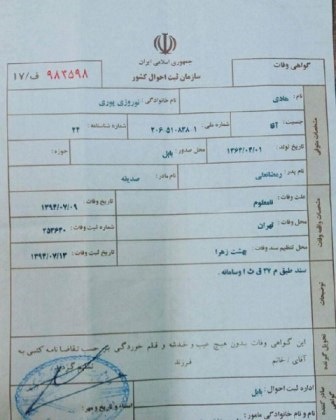 جمهوری اسلامی ایران
سازمان ثبت احوال کشور
گواهی وفات
۹۸۳۵۹۸ ف/۱۷
مشخصات متوفی
نام: هادی نام خانوادگی: نوروزی پوری
جنسیت: آقا شماره ملی: شماره شناسنامه: ۲۴
تاریخ تولد: ۱۳۶۴/۰۴/۰۱ محل صدور: بابل حوزه:
نام پدر: رمضانعلی نام مادر: صدیقه
علت وفات: نامعلوم تاریخ وفات: ۱۳۹۴/۰۷/۰۹
محل وفات: تهران شماره ثبت وفات: ۲۵۳۶۳۰
محل تنظیم سند وفات: بهشت زهرا تاریخ ثبت وفات: ۱۳۹۴/۰۷/۱۳
توضیحات
سند طبق م ۲۷ ق ث ا وسامانه.
این گواهی وفات بدون هیچ عیب و خدشه و قلم خوردگی بر حسب تقاضا نامه کتبی به
آقای / خانم فرزند
اداره ثبت احوال: بابل
نام و نام خانوادگی مامور: